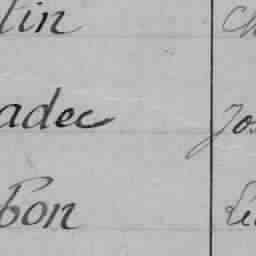 tin Ch
adec Jos
bon Lé